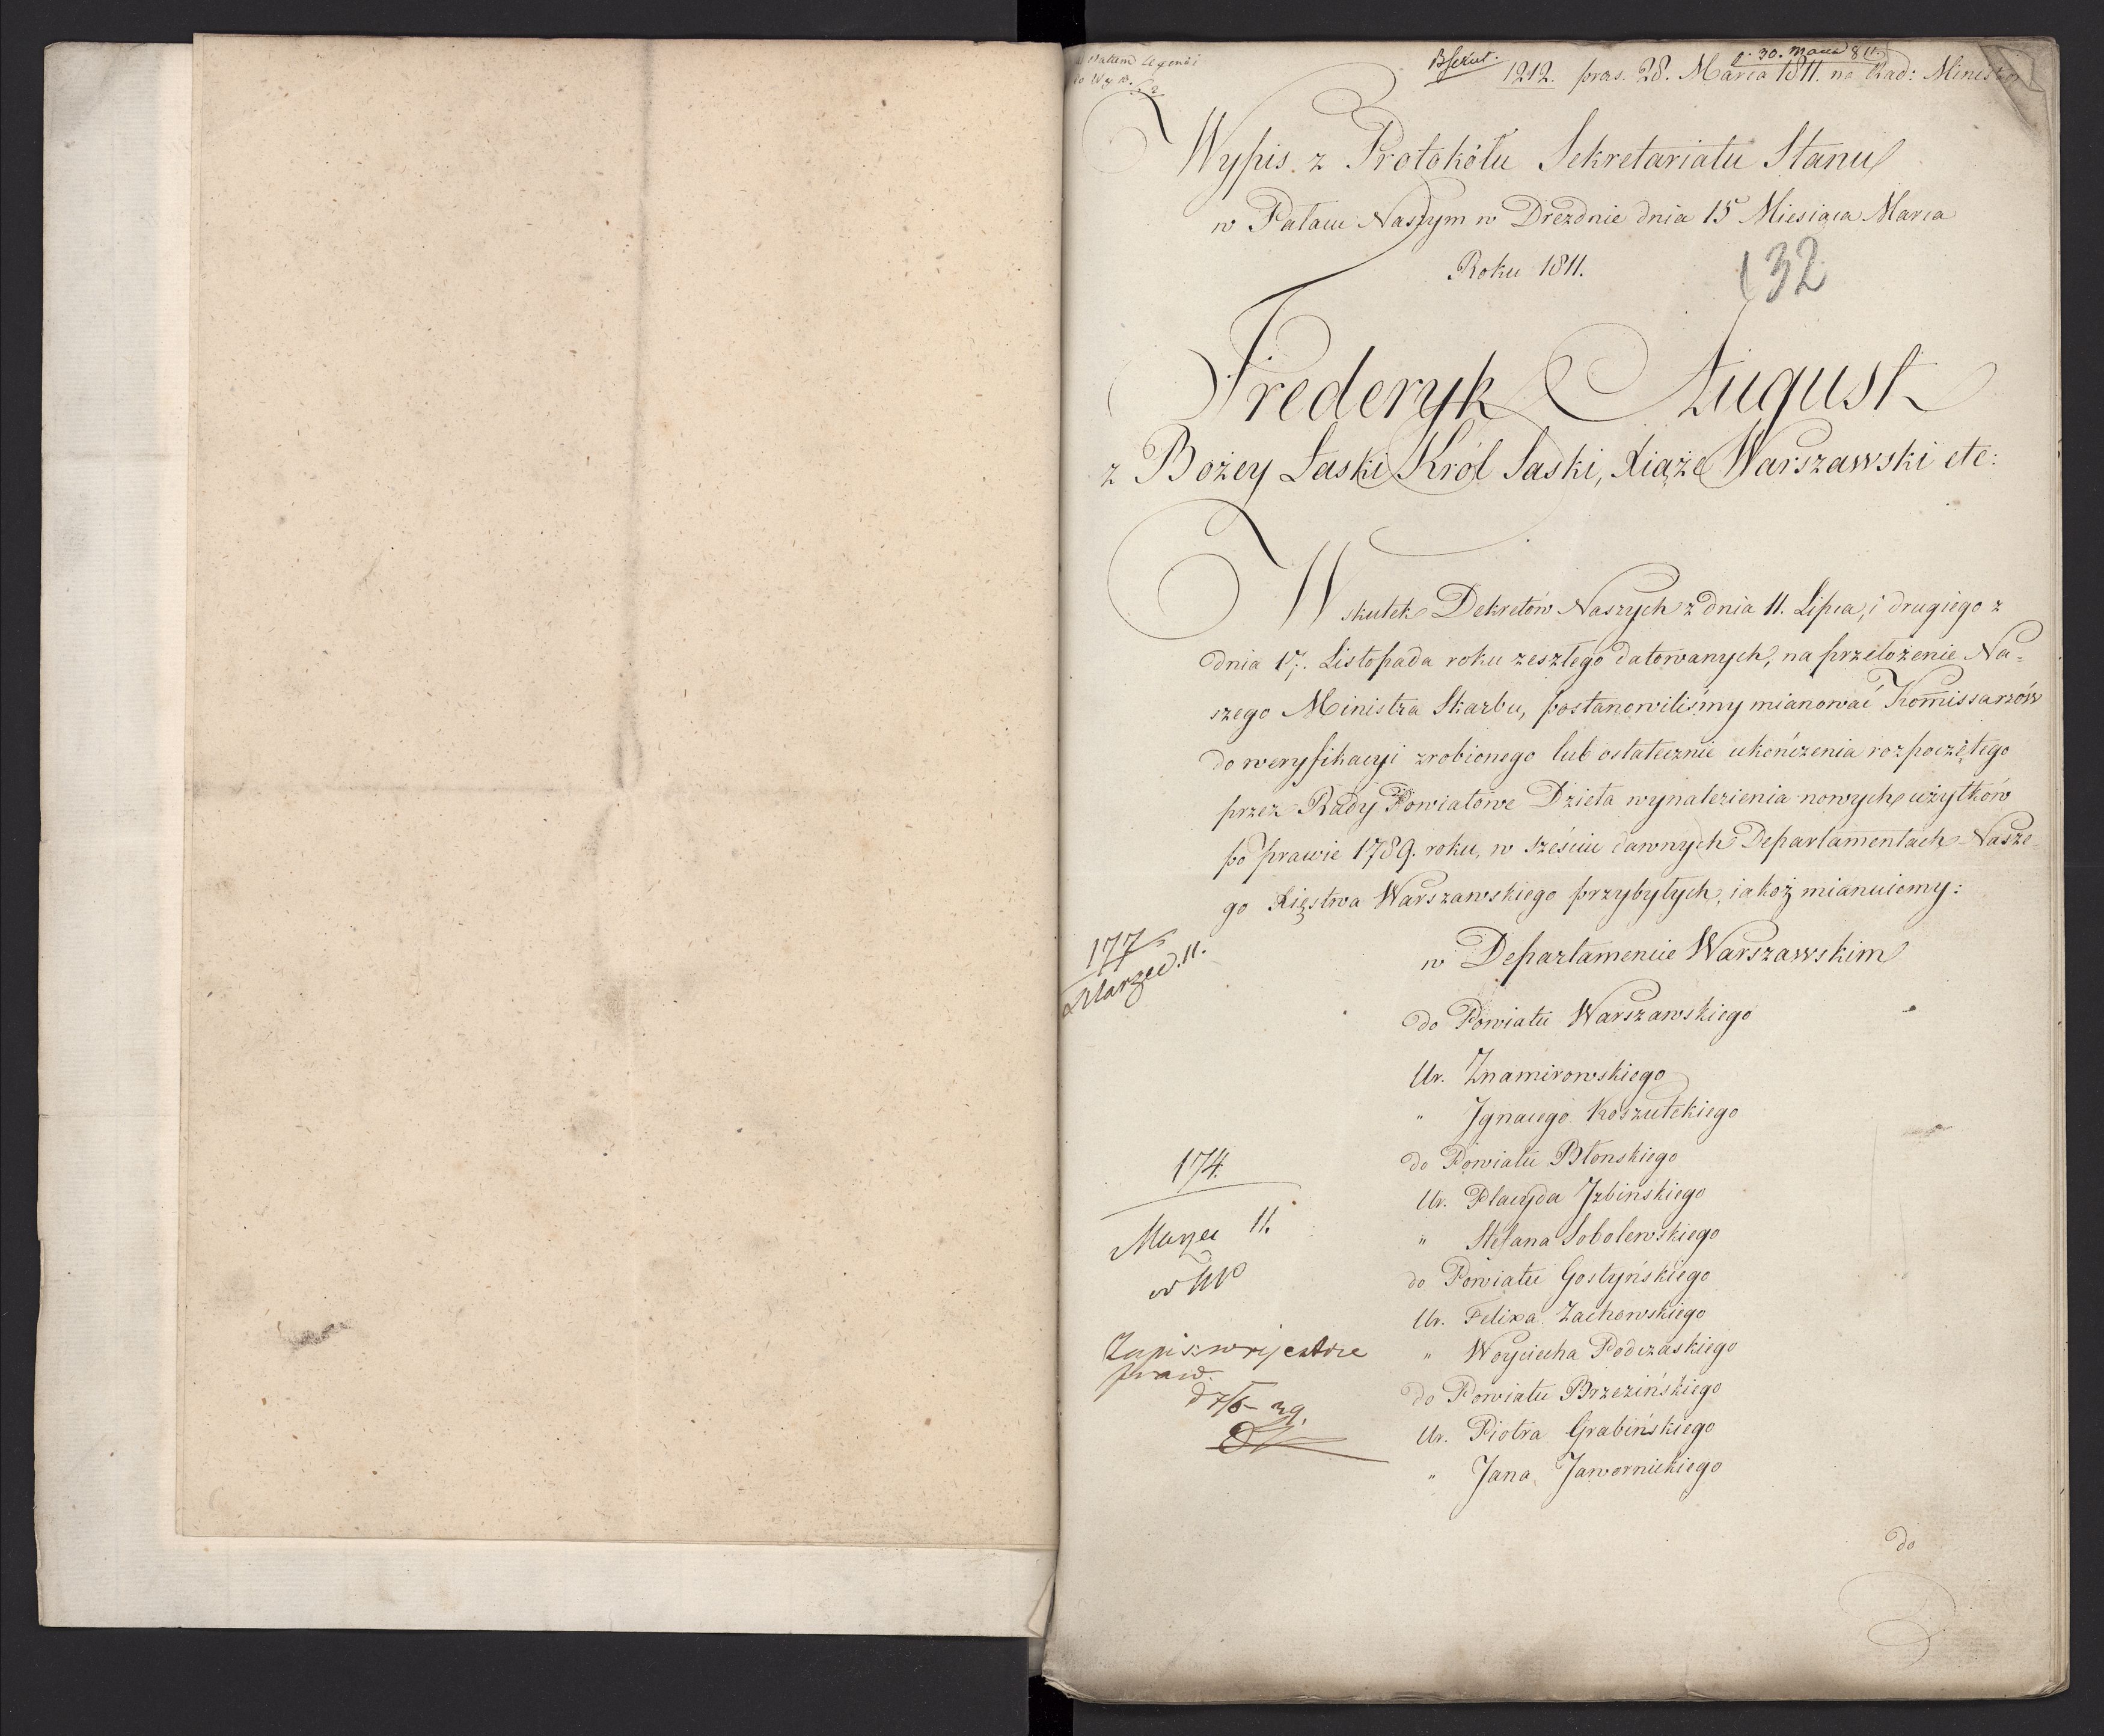 1212. pras. 28. Marca 1811. na Rad: Ministrów
d. 30. Marca 811.
Wypis z Protokółu Sekretariatu Stanu
w Pałacu Naszym w Dreznie dnia 15 Miesiąca Marca
Roku 1811.
132
Frederyk August
z Bożey Łaski Król Saski, Xiąże Warszawski etc:
W skutek Dekretów Naszych z dnia 11. Lipca, i drugiego z
dnia 17. Listopada roku zeszłego datowanych, na przełożenie Na-
szego Ministra Skarbu, postanowiliśmy mianować Kom̄issarzów
do weryfikacyi zrobionego lub ostatecznie ukończenia rozpoczętego
przez Rady Powiatowe Dzieła wynalezienia nowych użytków
po prawie 1789. roku, w sześciu dawnych Departamentach Nasze-
go Xięstwa Warszawskiego przybyłych, iakoż mianuiemy:
177
Marzec. 11.
w Departamencie Warszawskim
do Powiatu Warszawskiego
Ur. Znamirowskiego
" Ignacego Koszutskiego
do Powiatu Błonskiego
Ur. Placyda Izbinskiego
" Stefana Sobolewskiego
do Powiatu Gostyńskiego
Ur. Felixa Zachowskiego
" Woyciecha Podczaskiego
do Powiatu Brzezińskiego
Ur. Piotra Grabińskiego
" Jana Jawornickiego
174.
Marzec 11.
Zapis w rejestrze
praw.
d 7/6 39.
do